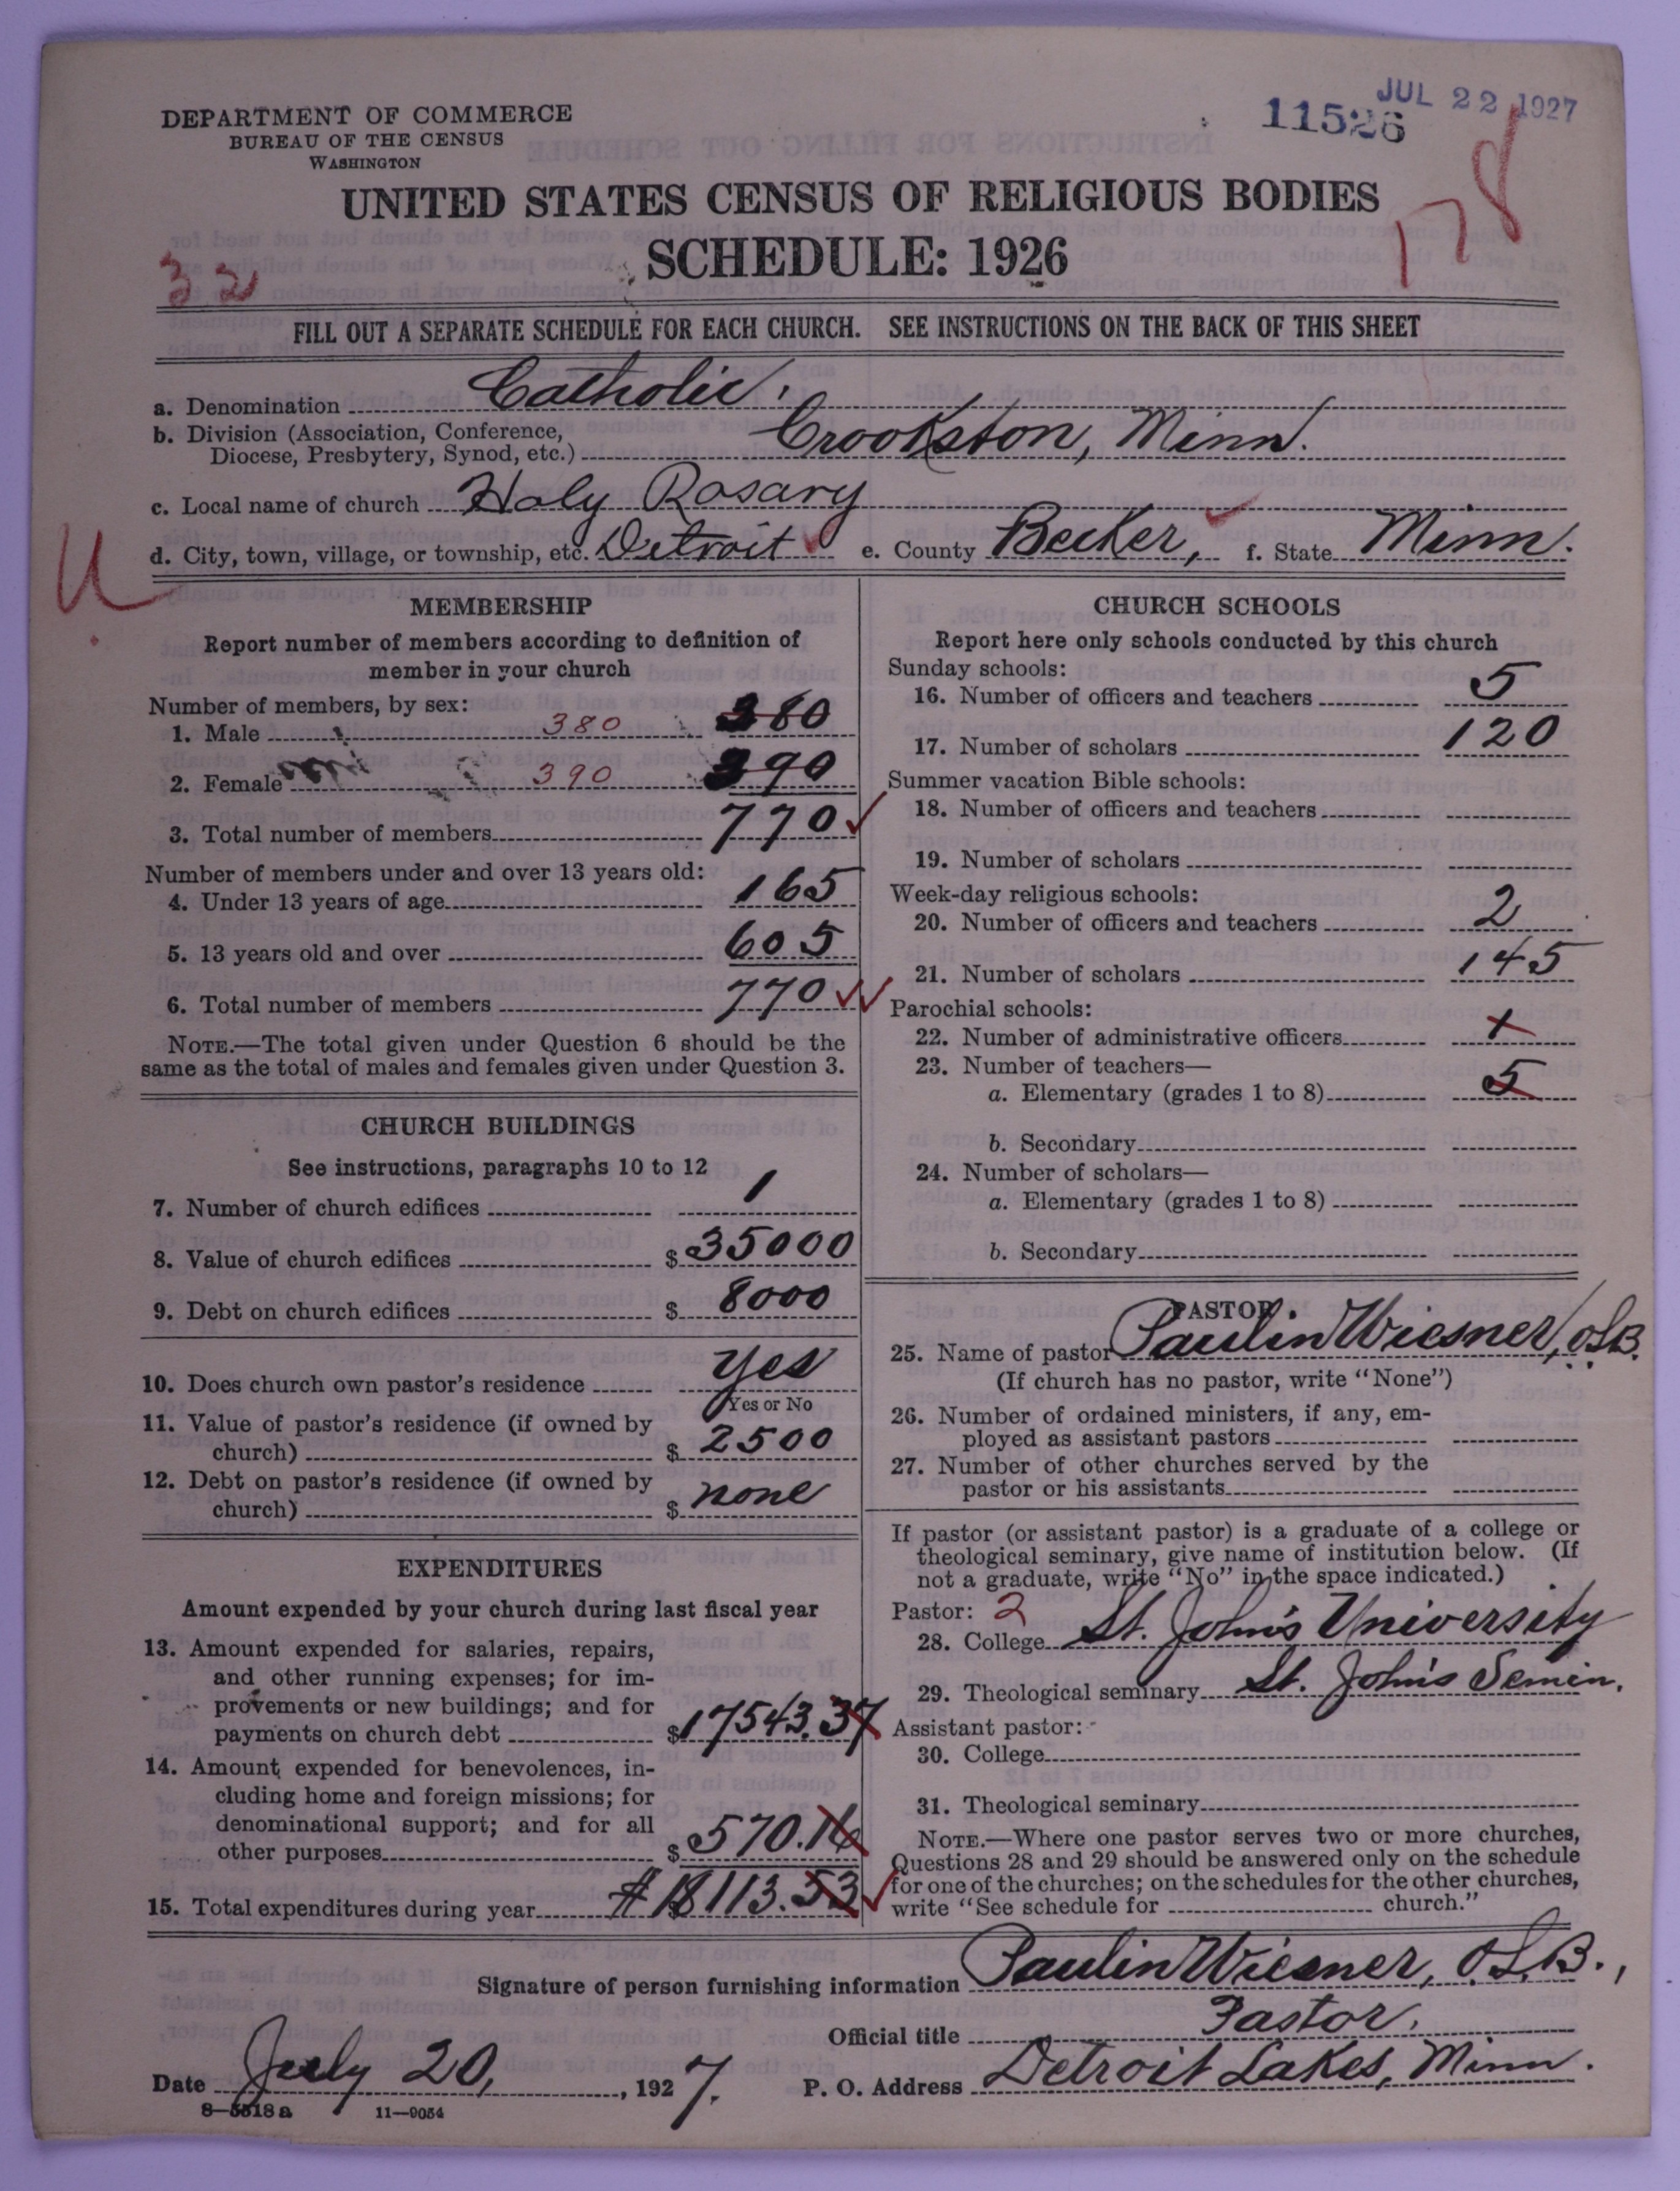 DEPARTMENT OF COMMERCE
BUREAU OF THE CENSUS
WASHINGTON
11526
JUL 22 1927
178
UNITED STATES CENSUS OF RELIGIOUS BODIES
SCHEDULE: 1926
32
FILL OUT A SEPARATE SCHEDULE FOR EACH CHURCH. SEE INSTRUCTIONS ON THE BACK OF THIS SHEET
a. Denomination Catholic.
b. Division (Association, Conference,
Diocese, Presbytery, Synod, etc.) Crookston, Minn.
c. Local name of church Holy Rosary
d. City, town, village, or township, etc. Detroit e. County Becker, f. State Minn.
U
MEMBERSHIP
Report number of members according to definition of
member in your church
Number of members, by sex:
1. Male 380 380
2. Female 390 390
3. Total number of members 770
Number of members under and over 13 years old:
4. Under 13 years of age 165
5. 13 years old and over 605
6. Total number of members 770
NOTE.—The total given under Question 6 should be the
same as the total of males and females given under Question 3.
CHURCH BUILDINGS
See instructions, paragraphs 10 to 12
7. Number of church edifices 1
8. Value of church edifices $ 35000
9. Debt on church edifices $ 8000
10. Does church own pastor's residence Yes
Yes or No
11. Value of pastor's residence (if owned by
church) $ 2500
12. Debt on pastor's residence (if owned by
church) $ none
EXPENDITURES
Amount expended by your church during last fiscal year
13. Amount expended for salaries, repairs,
and other running expenses; for im-
provements or new buildings; and for
payments on church debt $ 17543.37
14. Amount expended for benevolences, in-
cluding home and foreign missions; for
denominational support; and for all
other purposes $ 570.16
15. Total expenditures during year $ 18113.53
CHURCH SCHOOLS
Report here only schools conducted by this church
Sunday schools:
16. Number of officers and teachers 5
17. Number of scholars 120
Summer vacation Bible schools:
18. Number of officers and teachers
19. Number of scholars
Week-day religious schools:
20. Number of officers and teachers 2
21. Number of scholars 145
Parochial schools:
22. Number of administrative officers 1
23. Number of teachers—
a. Elementary (grades 1 to 8) 5
b. Secondary
24. Number of scholars—
a. Elementary (grades 1 to 8)
b. Secondary
PASTOR
25. Name of pastor Paulin Wiesner, O.S.B.
(If church has no pastor, write "None")
26. Number of ordained ministers, if any, em-
ployed as assistant pastors
27. Number of other churches served by the
pastor or his assistants
If pastor (or assistant pastor) is a graduate of a college or
theological seminary, give name of institution below. (If
not a graduate, write "No" in the space indicated.)
Pastor: 2
28. College St. John's University
29. Theological seminary St. John's Semin.
Assistant pastor:
30. College
31. Theological seminary
NOTE.—Where one pastor serves two or more churches,
Questions 28 and 29 should be answered only on the schedule
for one of the churches; on the schedules for the other churches,
write "See schedule for church."
Signature of person furnishing information Paulin Wiesner, O.S.B.,
Official title Pastor.
Date July 20, 1927. P. O. Address Detroit Lakes, Minn.
8—5518 a 11—9054